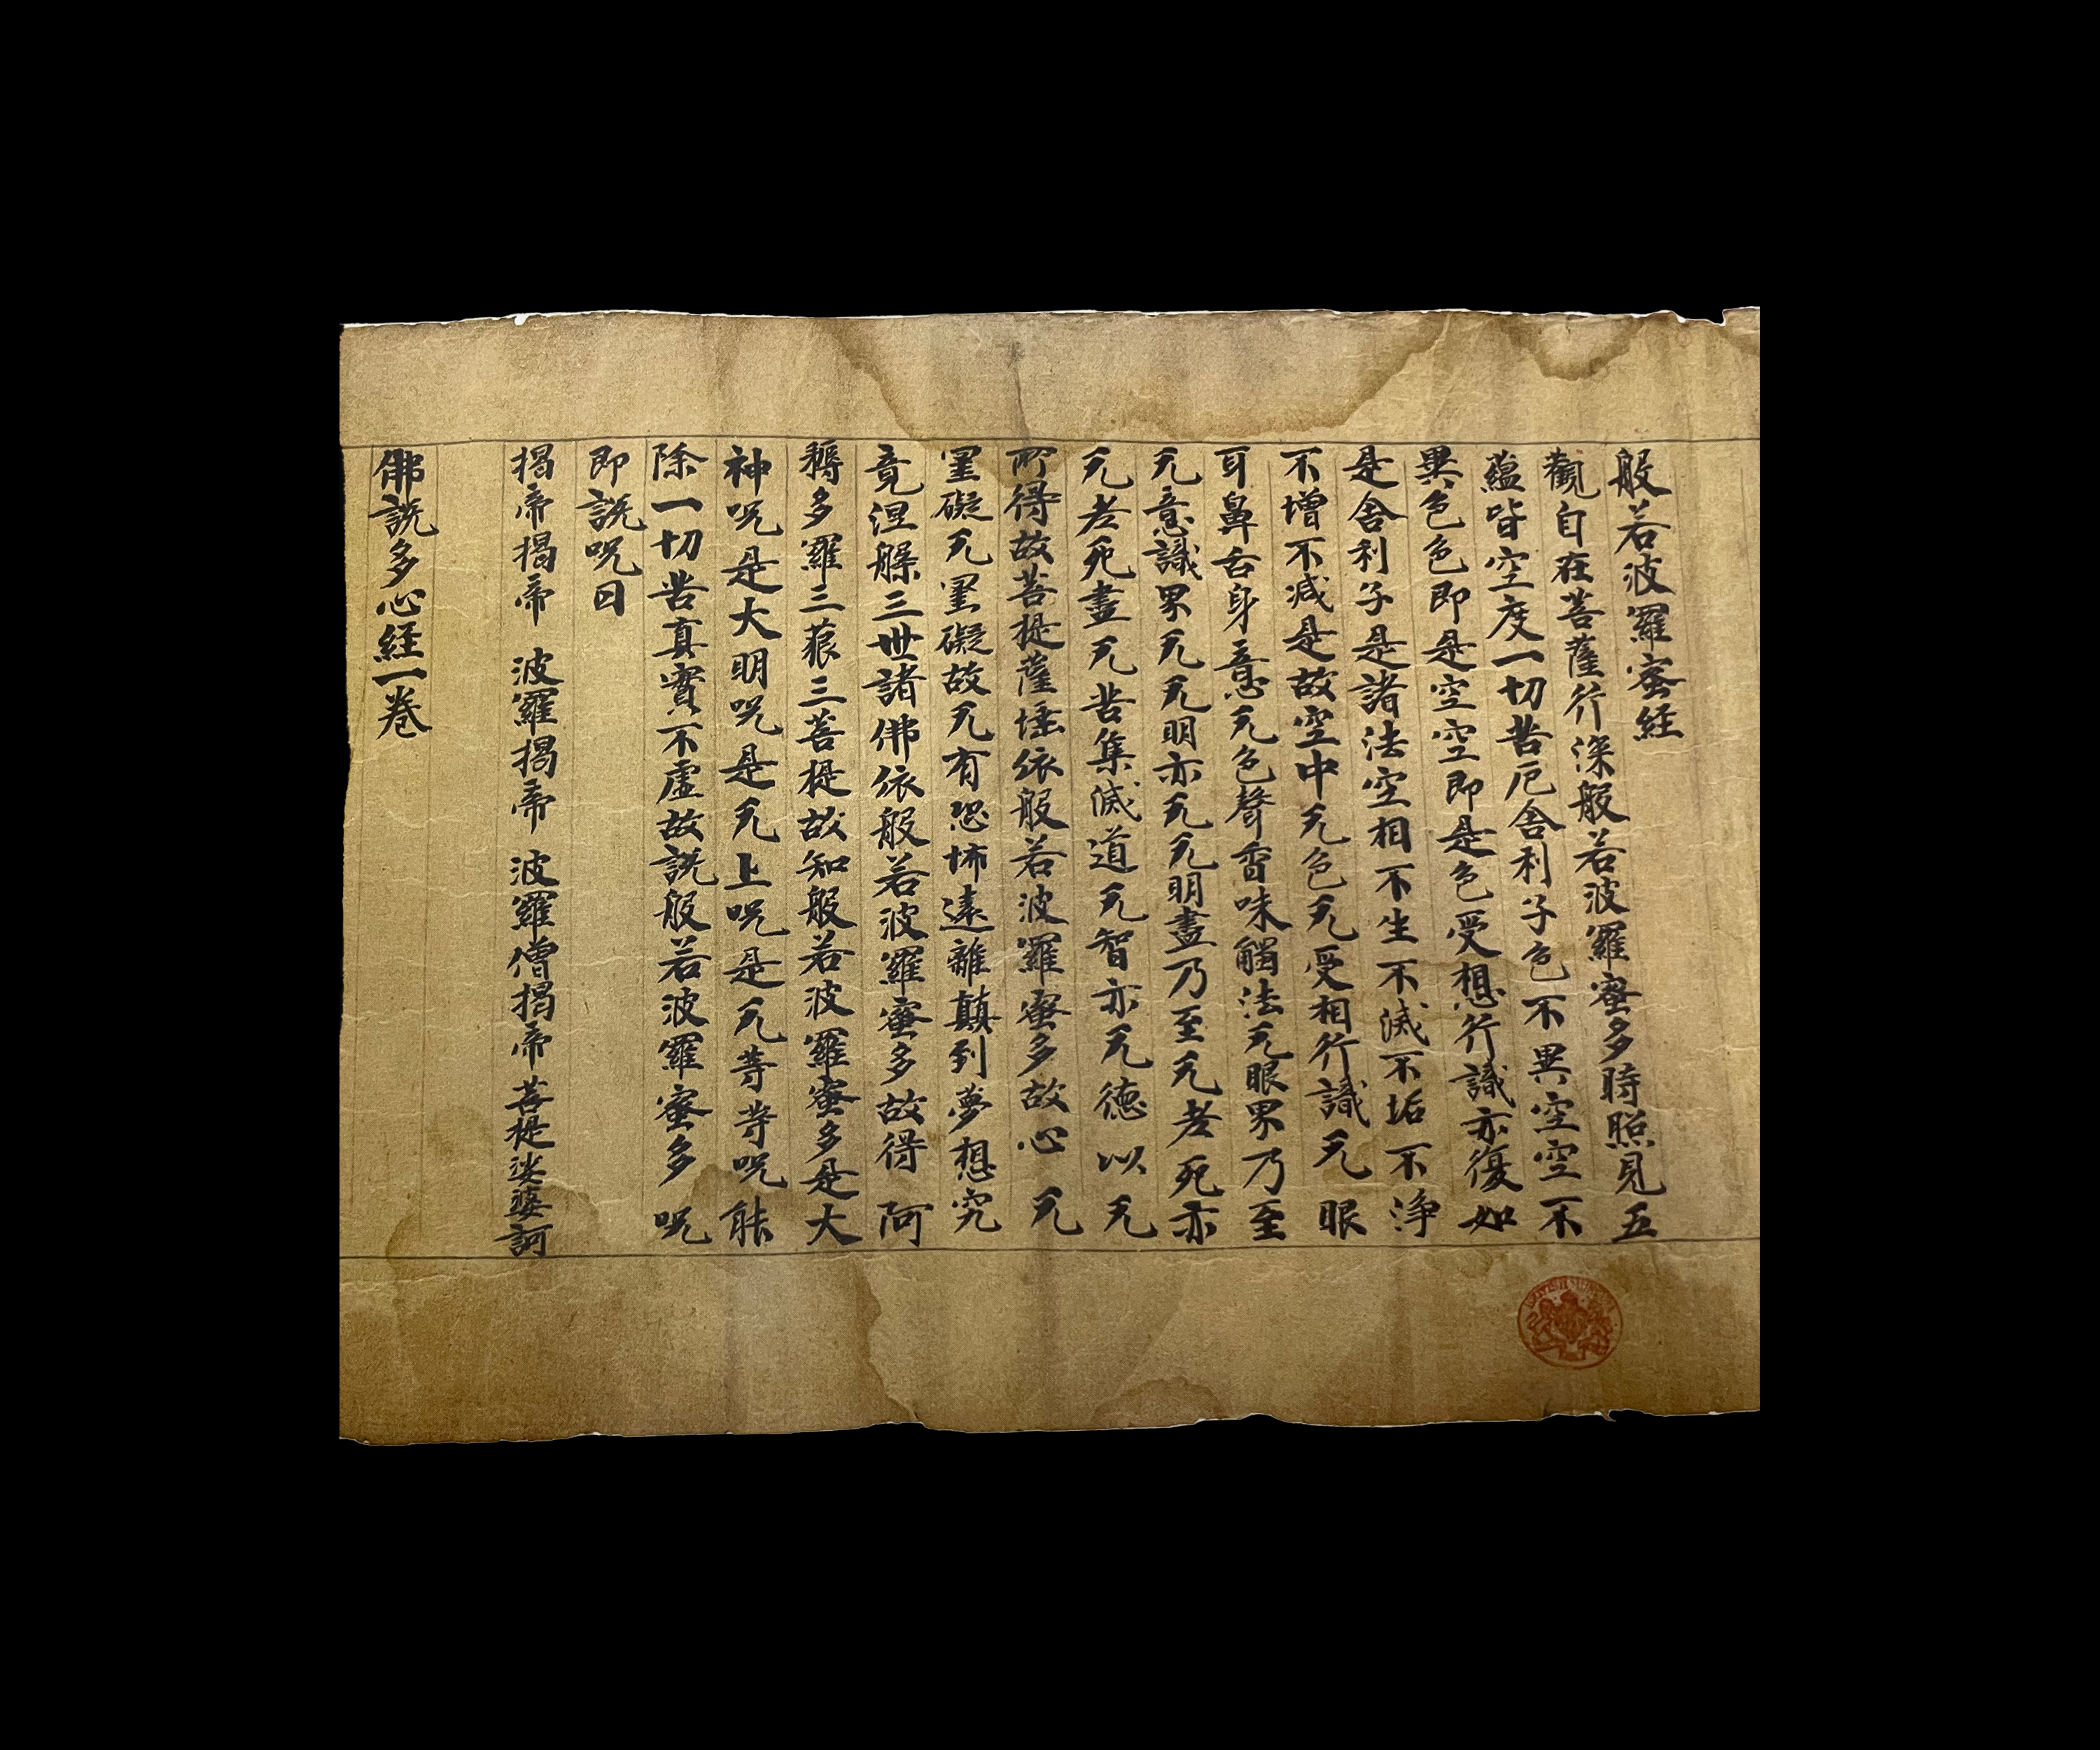 般若波羅蜜経
觀自在菩薩行深般若波羅蜜多時照見五
蘊皆空度一切苦厄舍利子色不異空空不
異色色即是空空即是色受想行識亦復如
是舍利子是諸法空相不生不滅不垢不浄
不增不減是故空中无色无受相行識无眼
耳鼻舌身意无色聲香味觸法无眼界乃至
无意識界无无明亦无无明盡乃至无老死亦
无老死盡无苦集滅道无智亦无德以无
所得故菩提薩埵依般若波羅蜜多故心无
罣礙无罣礙故无有恐怖遠離顛到夢想究
竟涅槃三世諸佛依般若波羅蜜多故得阿
耨多羅三藐三菩提故知般若波羅蜜多是大
神呪是大明呪是无上呪是无等等呪能
除一切苦真實不虛故説般若波羅蜜多呪
即説呪曰
揭帝揭帝 波羅揭帝 波羅僧揭帝菩提娑婆訶
佛説多心経一卷